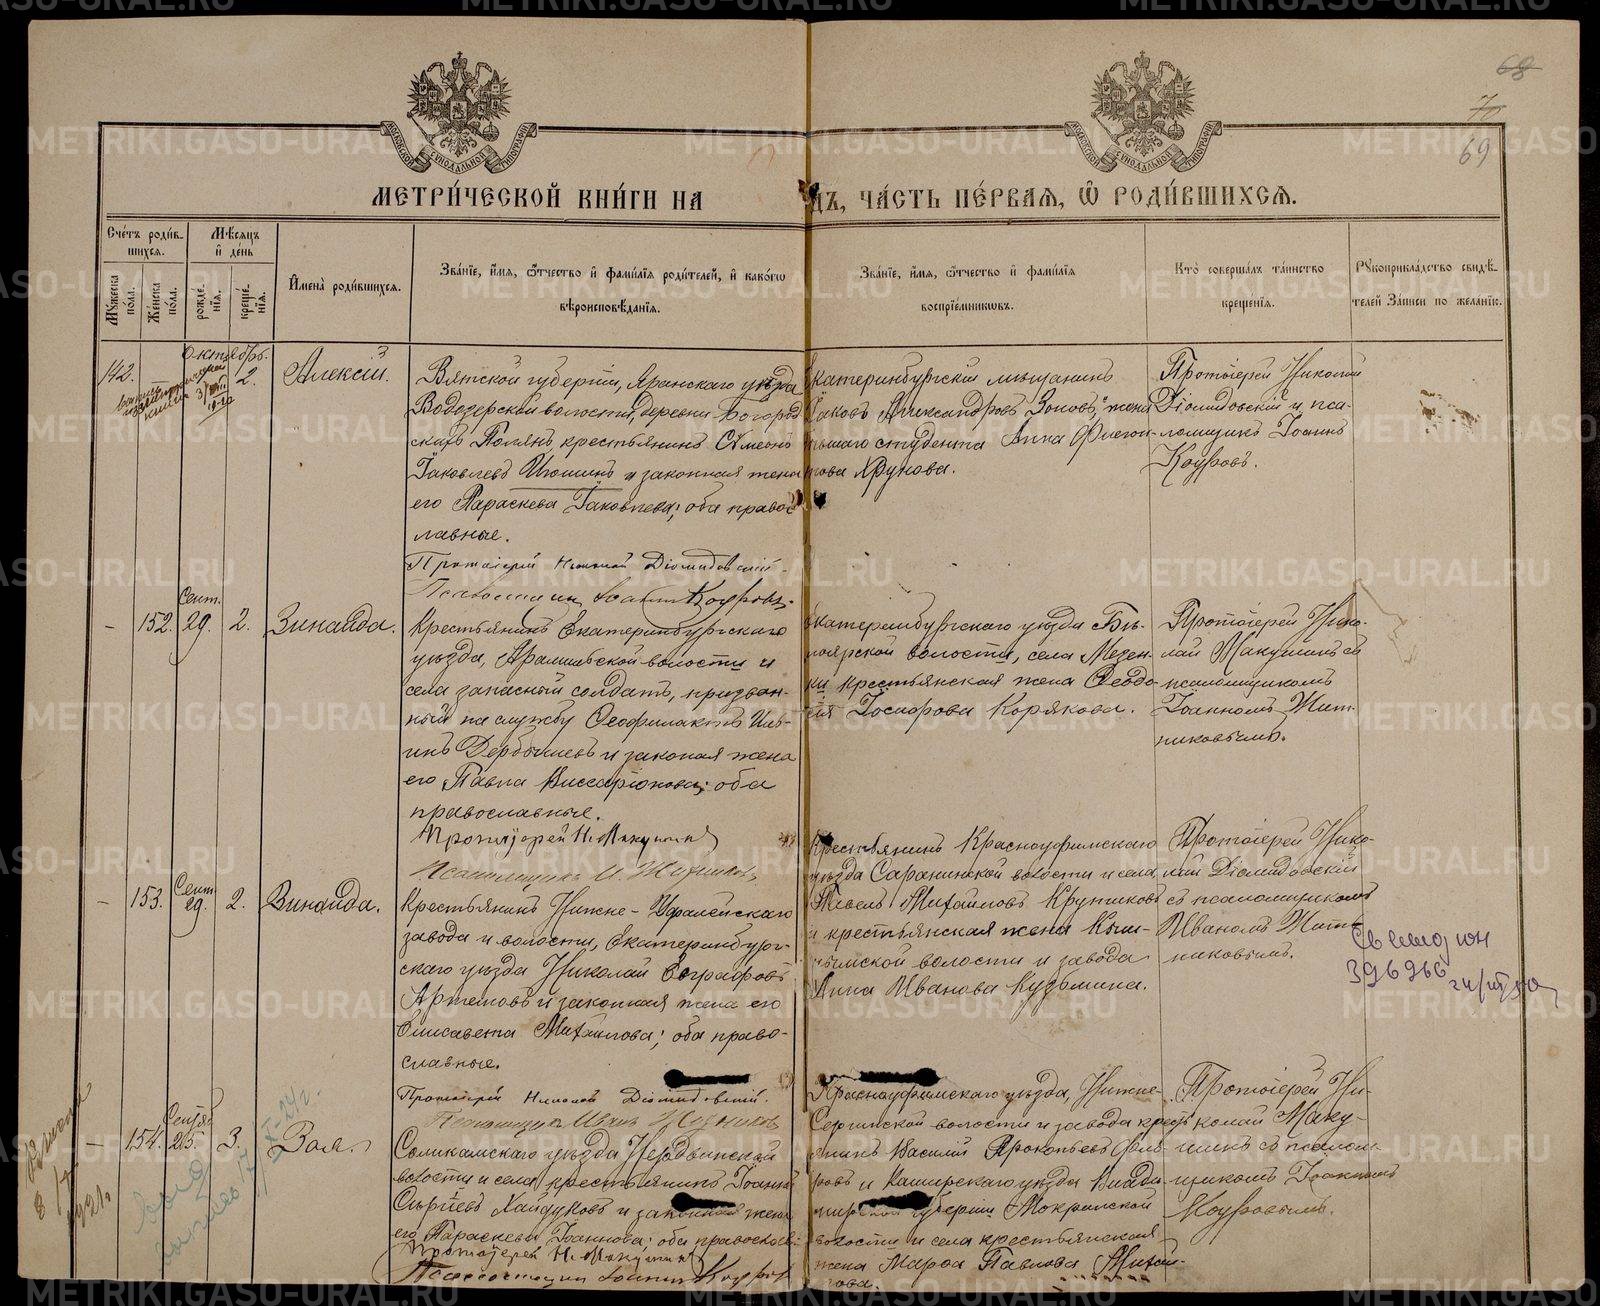 68
7
69
МЕТРИ́ЧЕСКОЙ КНИ́ГИ НА ДЪ, ЧА́СТЬ ПЕ́РВАЯ, Ѡ҆ РОДИ́ВШИХСЯ.
Сче́тъ роди́в-
шихся.
Му́жеска по́ла.
Же́нска по́ла.
Мѣ́сяцъ
и҆ де́нь
рожде́-
нїя.
креще́-
нїя.
И҆мена̀ роди́вшихся.
Зва́нїе, и҆́мя, ѻ҆́тчество и҆ фами́лїя роди́телей, и҆ како́гѡ
вѣроисповѣ́данїя.
Зва́нїе, и҆́мя, ѻ҆́тчество и҆ фами́лїя
воспрїе́мниковъ.
Кто̀ соверша́лъ та́инство
креще́нїя.
Рꙋкоприкла́дство свидѣ́-
телей за́писи по жела́нїю.
Октябрь.
142.
2.
Алексій.
Вятской губерніи, Яранскаго уѣзда
Водозерской волости, деревни Богород
скихъ Полянъ, крестьянинъ Сѵмеонъ
Іаковлевъ Июшинъ и законная жена
его Параскева Іаковлева; оба право-
славные.
Протоіерей Николай Діомидовскій.
Псаломщикъ Іоаннъ Коуровъ.
Екатеринбургскій мѣщанинъ
Іаковъ Александровъ Зоновъ и жена
бывшаго студента Анна Флегон-
това Хрунова.
Протоіерей Николай
Діомидовскій и пса-
ломщикъ Іоаннъ
Коуровъ.
Сент.
-
152.
29.
2.
Зинаида.
Крестьянинъ Екатеринбургскаго
уѣзда, Арамильской волости и
села запасный солдатъ, призван-
ный на службу Ѳеофилактъ Иль-
инъ Дербышевъ и законая жена
его Павла Виссаріонова; оба
православные.
Протоіерей Н. Макушинъ
Псаломщикъ И. Житниковъ
Екатеринбургскаго уѣзда Бѣ-
лоярской волости, села Мезен-
ки крестьянская жена Ѳеодо-
сія Іосифова Корякова.
Протоіерей Нико-
лай Макушинъ съ
псаломщикомъ
Іоанномъ Жит-
никовымъ.
-
153.
Сент
29.
2.
Зинаида.
Крестьянинъ Нижне-Уфалейскаго
завода и волости, Екатеринбург-
скаго уѣзда Николай Евграфовъ
Артемовъ и законная жена его
Елисавета Михаилова; оба право-
славные.
Протоіерей Николай Діомидовскій.
Псаломщикъ Иванъ Житниковъ
Крестьянинъ Красноуфимскаго
уѣзда Саранинской волости и села
Павелъ Михаиловъ Крупиковъ
и крестьянская жена Кыш-
тымской волости и завода
Анна Иванова Кузьмина.
Протоіерей Нико-
лай Діомидовскій
съ псаломщикомъ
Иваномъ Жит-
никовымъ.
396966
-
154.
Сентяб
25.
3.
Зоя.
Соликамскаго уѣзда Нердвинской
волости и села, крестьянинъ Іоаннъ
Сергіевъ Хайдуковъ и законная жена
его Параскева Іоаннова; оба православ.
Протоіерей Н. Макушинъ
Псаломщикъ Іоаннъ Коуровъ
Красноуфимскаго уѣзда, Нижне-
Сергинской волости и завода крест
янинъ Василій Прокопьевъ
ровъ и Каширскаго уѣзда Влади-
мирской губерніи Мокринской
волости и села крестьянская
жена Марѳа Павлова Михай-
лова.
Протоіерей Ни-
колай Маку-
шинъ съ псалом-
щикомъ Іоанномъ
Коуровымъ.